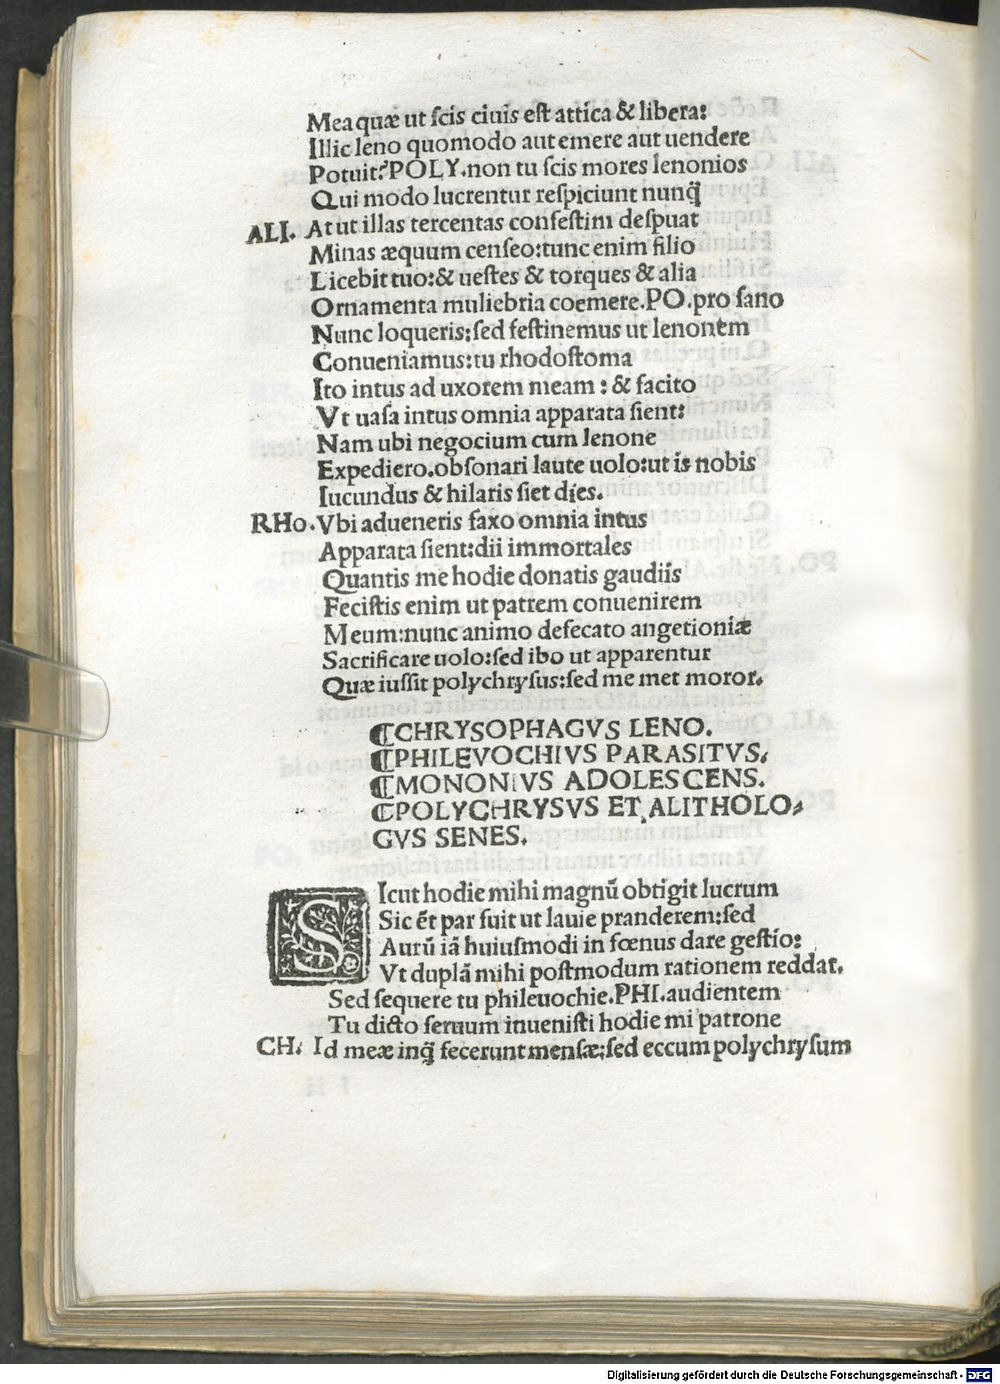 Mea quæ ut ſcis ciuis eſt attica & libera:
Illic leno quomodo aut emere aut uendere
Potuit? POLY. non tu ſcis mores lenonios
Qui modo lucrentur reſpiciunt nunq̃
ALI. At ut illas tercentas confeſtim deſpuat
Minas æquum cenſeo: tunc enim filio
Licebit tuo: & ueſtes & torques & alia
Ornamenta muliebria coemere. PO. pro ſano
Nunc loqueris: ſed feſtinemus ut lenonem
Conueniamus: tu rhodoſtoma
Ito intus ad uxorem meam: & facito
Vt uaſa intus omnia apparata ſient:
Nam ubi negocium cum lenone
Expediero. obſonari laute uolo: ut is nobis
Iucundus & hilaris ſiet dies.
RHo. Vbi adueneris faxo omnia intus
Apparata ſient: dii immortales
Quantis me hodie donatis gaudiis
Feciſtis enim ut patrem conuenirem
Meum: nunc animo defecato angetioniæ
Sacrificare uolo: ſed ibo ut apparentur
Quæ iuſſit polychryſus: ſed me met moror.
¶CHRYSOPHAGVS LENO.
¶PHILEVOCHIVS PARASITVS.
¶MONONIVS ADOLESCENS.
¶POLYCHRYSVS ET ALITHOLO-
GVS SENES.
SIcut hodie mihi magnũ obtigit lucrum
Sic ẽt par fuit ut lauie pranderem: ſed
Aurũ iã huiuſmodi in fœnus dare geſtio:
Vt duplã mihi poſtmodum rationem reddat.
Sed ſequere tu phileuochie. PHI. audientem
Tu dicto ſeruum inueniſti hodie mi patrone
CH. Id meæ inq̃ fecerunt menſæ: ſed eccum polychryſum
Digitalisierung gefördert durch die Deutsche Forschungsgemeinschaft - DFG